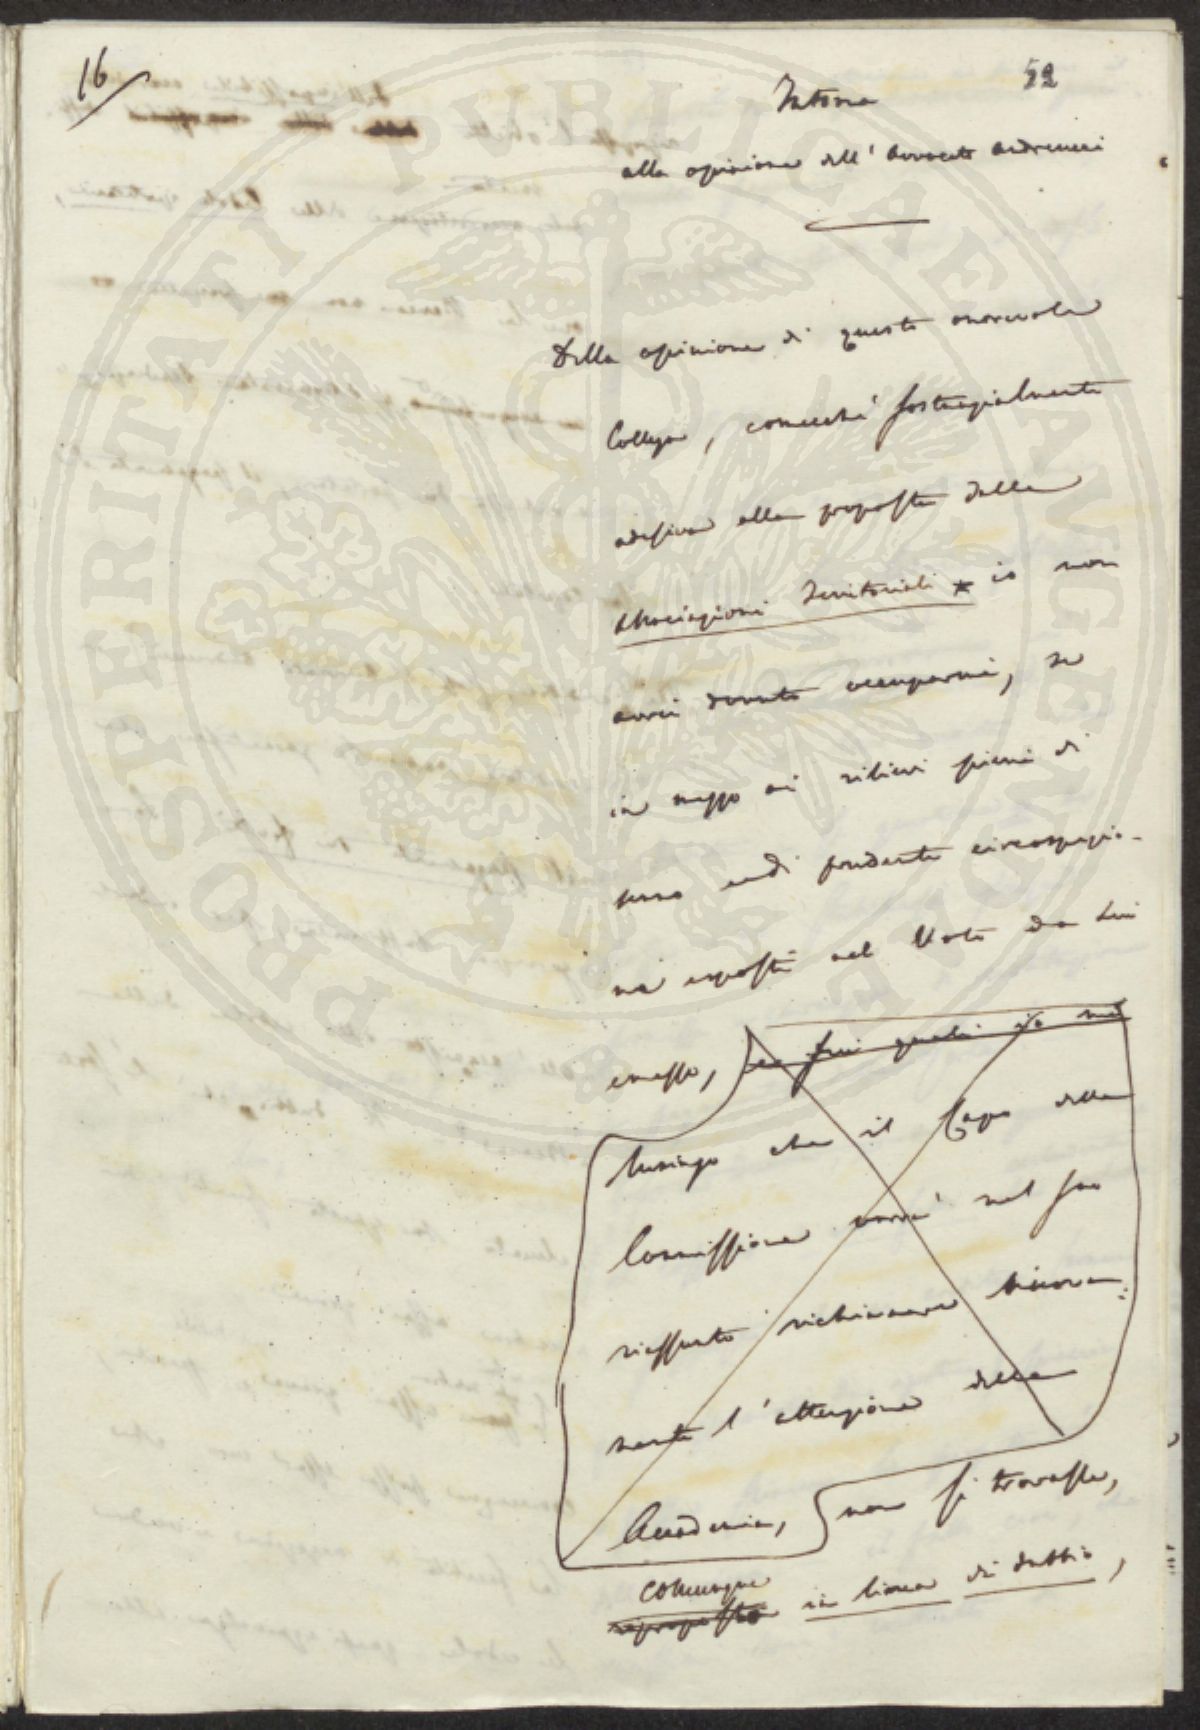 16
52
Intorno
alla opinione dell' Avvocato Andreucci
Della opinione di questo onorevole
Collega, comecchè sostanzialmente
adesiva alla proposta delle
Associazioni Territoriali * io non
avrei dovuto occuparmi, se
in mezzo ai rilievi pieni di
senno e di prudente circospezio-
ne esposti nel Voto da Lui
emesso, su quali io mi
lusingo che il Capo della
Commissione vorrà nel suo
riassunto richiamare
l'attenzione della
Accademia, non si trovasse,
comunque
in linea di dubbio,
PROSPERITATI PUBLICAE AUGENDAE